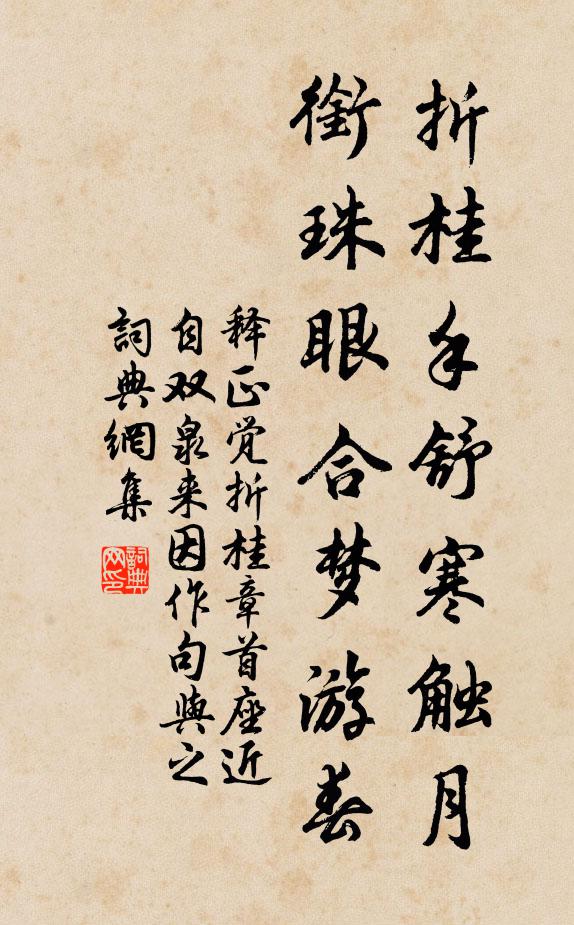 折桂手舒寒触月
衔珠眼合梦游春
释正觉折桂章首座近
自双泉来因作句与之
词典網集
詞典网印